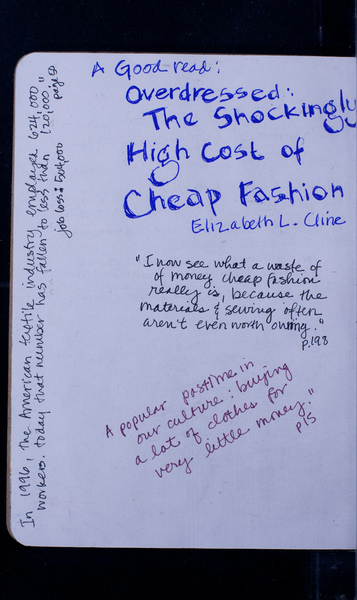 A Good read:
Overdressed:
The Shockingly
High Cost of
Cheap Fashion
Elizabeth L. Cline
"I now see what a waste of
of money cheap fashion
really is, because the
materials & sewing often
aren't even worth owning."
p.198
A popular pastime in
our culture: buying
a lot of clothes for
very little money."
p15
In 1996, the American textile industry employed 624,000
workers. today that number has fallen to less than 120,000."
page 50
job loss: 504,000